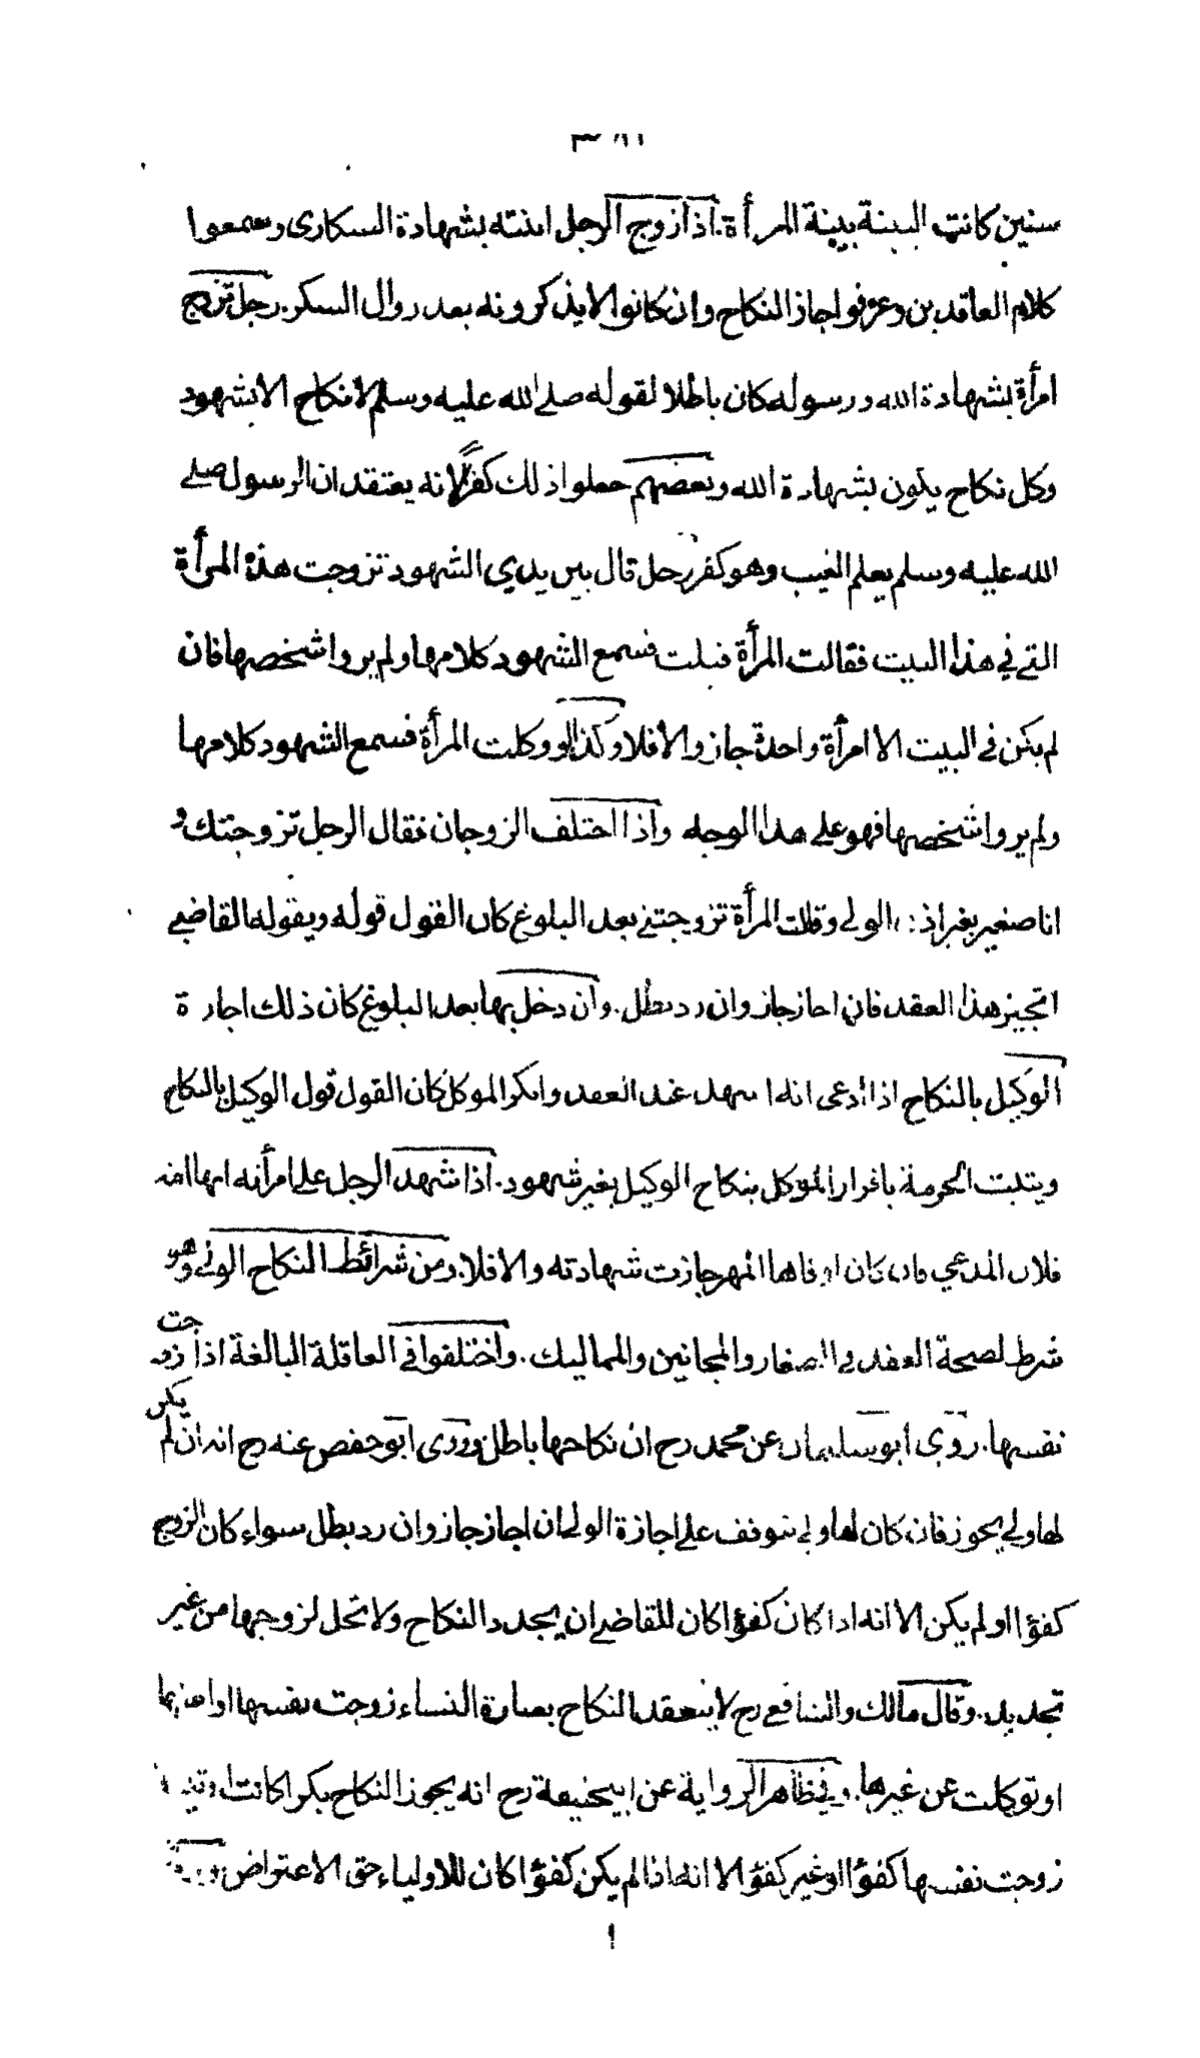 سنين كانت البينة بينة المرأة. اذا زوج الرجل ابنته بشهادة السكارى وسمعوا
كلام العاقدين وعرفوا جاز النكاح وان كانوا لا يذكرونه بعد زوال السكر. رجل تزوج
امرأة بشهادة الله ورسوله كان باطلا لقوله صلے الله عليه وسلم لا نكاح الا بشهود
وكل نكاح يكون بشهادة الله وبعضهم جعلوا ذلك كفرًا لانه يعتقد ان الرسول صلے
الله عليه وسلم يعلم الغيب وهو كفر. رجل قال بين يدي الشهود تزوجت هذه المرأة
التے في هذا البيت فقالت المرأة قبلت فسمع الشهود كلامها ولم يروا شخصها فان
لم يكن في البيت الا امرأة واحدة جاز والا فلا وكذا لو وكلت المرأة فسمع الشهود كلامها
ولم يروا شخصها فهو على هذا الوجه واذا اختلف الزوجان فقال الرجل تزوجتك و
انا صغير بغير اذن الولے وقالت المرأة تزوجتنے بعد البلوغ كان القول قوله ويقول له القاضے
اتجيز هذا العقد فان اجاز جاز وان رد بطل. وان دخل بها بعد البلوغ كان ذلك اجازة
الوكيل بالنكاح اذا ادعى انه اشهد عند العقد وانكر الموكل كان القول قول الوكيل بالنكاح
ويثبت الحرمة باقرار الموكل بنكاح الوكيل بغير شهود. اذا شهد الرجل على امرأته انها امة
فلان المدعي فان كان اوفاها المهر جازت شهادته والا فلا. ومن شرائط النكاح الولے وهو
شرط لصحة العقد في الصغار والمجانين والمماليك. واختلفوا في العاقلة البالغة اذا زوجت
نفسها. روى ابو سليمان عن محمد رح ان نكاحها باطل وروى ابو حفص عنه رح انه ان لم يكن
لها ولي يجوز فان كان لها ولي يتوقف على اجازة الولي ان اجاز جاز وان رد بطل سواء كان الزوج
كفؤا او لم يكن الا انه اذا كان كفؤا كان للقاضے ان يجدد النكاح ولا تحل لزوجها من غير
تجديد. وقال مالك والشافعے رح لا ينعقد النكاح بعبارة النساء زوجت نفسها او امتها
او توكلت عن غيرها. وفي ظاهر الرواية عن ابيحنيفة رح انه يجوز النكاح بكرا كانت او ثيبا
زوجت نفسها كفؤا او غير كفؤ الا انه اذا لم يكن كفؤا كان للاولياء حق الاعتراض